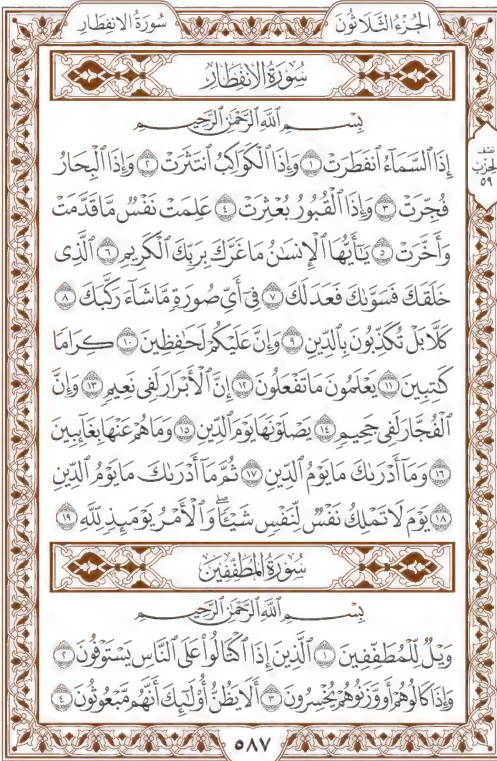 الجُزْءُ الثَّلَاثُونَ
سُورَةُ الانفِطَارِ
سُورَةُ الانفِطَارِ
بِسْمِ ٱللَّهِ ٱلرَّحْمَٰنِ ٱلرَّحِيمِ
إِذَا ٱلسَّمَآءُ ٱنفَطَرَتْ ١ وَإِذَا ٱلْكَوَاكِبُ ٱنتَثَرَتْ ٢ وَإِذَا ٱلْبِحَارُ
فُجِّرَتْ ٣ وَإِذَا ٱلْقُبُورُ بُعْثِرَتْ ٤ عَلِمَتْ نَفْسٌ مَّا قَدَّمَتْ
وَأَخَّرَتْ ٥ يَٰٓأَيُّهَا ٱلْإِنسَٰنُ مَا غَرَّكَ بِرَبِّكَ ٱلْكَرِيمِ ٦ ٱلَّذِى
خَلَقَكَ فَسَوَّىٰكَ فَعَدَلَكَ ٧ فِىٓ أَىِّ صُورَةٍ مَّا شَآءَ رَكَّبَكَ ٨
كَلَّا بَلْ تُكَذِّبُونَ بِٱلدِّينِ ٩ وَإِنَّ عَلَيْكُمْ لَحَٰفِظِينَ ١٠ كِرَامًا
كَٰتِبِينَ ١١ يَعْلَمُونَ مَا تَفْعَلُونَ ١٢ إِنَّ ٱلْأَبْرَارَ لَفِى نَعِيمٍ ١٣ وَإِنَّ
ٱلْفُجَّارَ لَفِى جَحِيمٍ ١٤ يَصْلَوْنَهَا يَوْمَ ٱلدِّينِ ١٥ وَمَا هُمْ عَنْهَا بِغَآئِبِينَ
١٦ وَمَآ أَدْرَىٰكَ مَا يَوْمُ ٱلدِّينِ ١٧ ثُمَّ مَآ أَدْرَىٰكَ مَا يَوْمُ ٱلدِّينِ
١٨ يَوْمَ لَا تَمْلِكُ نَفْسٌ لِّنَفْسٍ شَيْـًٔا ۖ وَٱلْأَمْرُ يَوْمَئِذٍ لِّلَّهِ ١٩
نصف
الحزب
٥٩
سُورَةُ المُطَفِّفِينَ
بِسْمِ ٱللَّهِ ٱلرَّحْمَٰنِ ٱلرَّحِيمِ
وَيْلٌ لِّلْمُطَفِّفِينَ ١ ٱلَّذِينَ إِذَا ٱكْتَالُوا۟ عَلَى ٱلنَّاسِ يَسْتَوْفُونَ ٢
وَإِذَا كَالُوهُمْ أَو وَّزَنُوهُمْ يُخْسِرُونَ ٣ أَلَا يَظُنُّ أُو۟لَٰٓئِكَ أَنَّهُم مَّبْعُوثُونَ ٤
٥٨٧